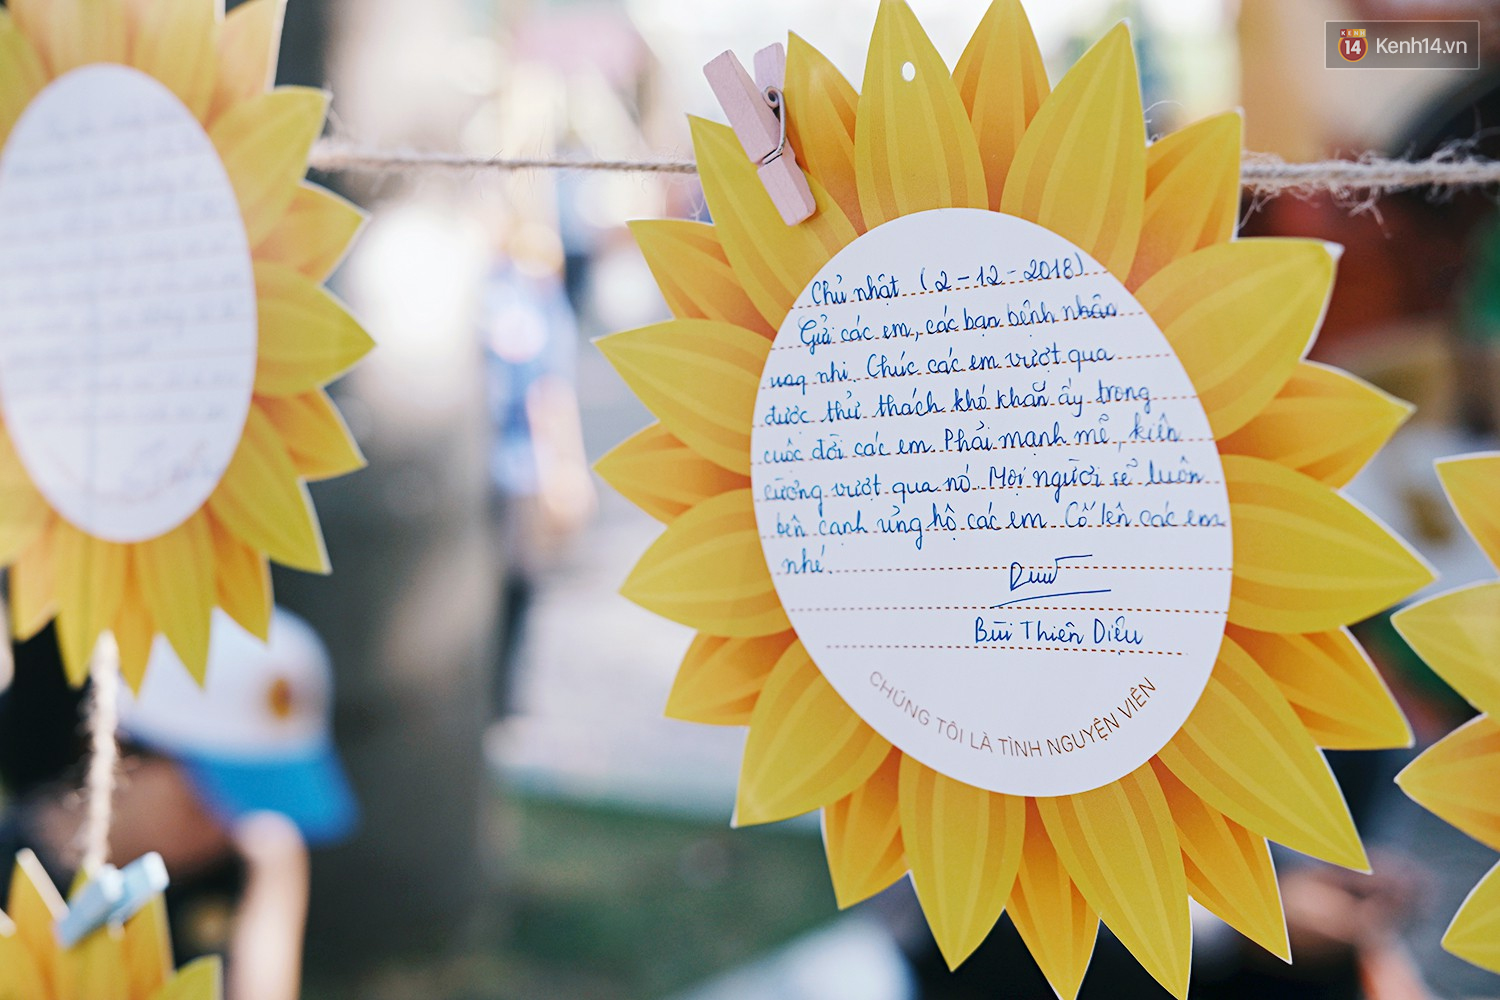 KENH
14
Kenh14.vn
Chủ nhật (2-12-2018)
Gửi các em, các bạn bệnh nhân
ung nhi. Chúc các em vượt qua
được thử thách khó khăn ấy trong
cuộc đời các em. Phải mạnh mẽ, kiên
cường vượt qua nó. Mọi người sẽ luôn
bên cạnh ủng hộ các em. Cố lên các em
nhé.
Bùi Thiên Diệu
CHÚNG TÔI LÀ TÌNH NGUYỆN VIÊN